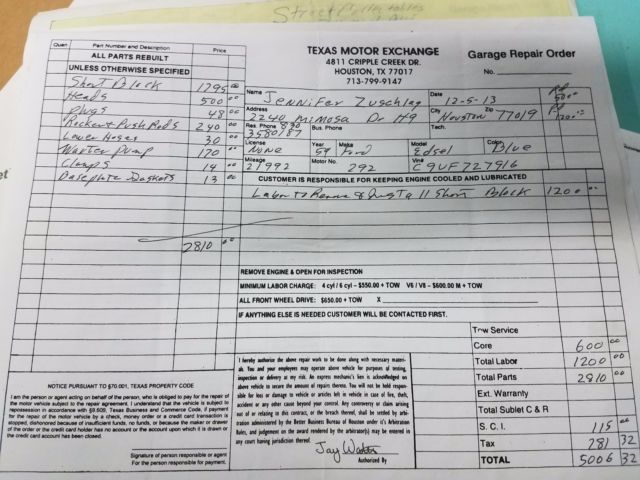 TEXAS MOTOR EXCHANGE
4811 CRIPPLE CREEK DR.
HOUSTON, TX 77017
713-799-9147
Garage Repair Order
No.
Quan Part Number and Description Price
ALL PARTS REBUILT
UNLESS OTHERWISE SPECIFIED
Short Block 1795 00
Heads 500 00
Plugs 48 00
Rocker & Push Rods 240 00
Lower Hoses 30 00
Water Pump 170 00
Clamps 14 00
Baseplate Gaskets 13 00
2810 00
Name Jennifer Zuschlag Date 12-5-13
Address 2240 Mimosa Dr #9 City Houston Zip 77019
Res. Phone 830 3580187 Bus. Phone Tech.
License None Year 59 Make Ford Model Edsel Color Blue
Mileage 21992 Motor No. 292 Vin# C9UF727916
Pd 500 00
Pd
CUSTOMER IS RESPONSIBLE FOR KEEPING ENGINE COOLED AND LUBRICATED
Labor to Remove & Install Short Block 1200 00
REMOVE ENGINE & OPEN FOR INSPECTION
MINIMUM LABOR CHARGE: 4 cyl / 6 cyl – $550.00 + TOW V6 / V8 – $600.00 M + TOW
ALL FRONT WHEEL DRIVE: $650.00 + TOW X
IF ANYTHING ELSE IS NEEDED CUSTOMER WILL BE CONTACTED FIRST.
Tow Service
Core 600 00
Total Labor 1200 00
Total Parts 2810 00
Ext. Warranty
Total Sublet C & R
S. C. I. 115 00
Tax 281 32
TOTAL 5006 32
NOTICE PURSUANT TO §70.001, TEXAS PROPERTY CODE
I am the person or agent acting on behalf of the person, who is obligated to pay for the repair of
the motor vehicle subject to the repair agreement. I understand that the vehicle is subject to
repossession in accordance with §9.509, Texas Business and Commerce Code, if payment
for the repair of the motor vehicle by a check, money order or a credit card transaction is
stopped, dishonored because of insufficient funds, no funds, or because the maker or drawer
of the order or the credit card holder has no account or the account upon which it is drawn or
the credit card account has been closed.
Signature of person responsible or agent
For the person responsible for payment.
I hereby authorize the above repair work to be done along with necessary materi-
als. You and your employees may operate above vehicle for purposes of testing,
inspection or delivery at my risk. An express mechanic's lien is acknowledged on
above vehicle to secure the amount of repairs thereto. You will not be held respon-
sible for loss or damage to vehicle or articles left in vehicle in case of fire, theft,
accident or any other cause beyond your control. Any controversy or claim arising
out of or relating to this contract, or the breach thereof, shall be settled by arbi-
tration administered by the Better Business Bureau of Houston under it's Arbitration
Rules, and judgement on the award rendered by the arbitrator(s) may be entered in
any court having jurisdiction thereof.
Authorized By